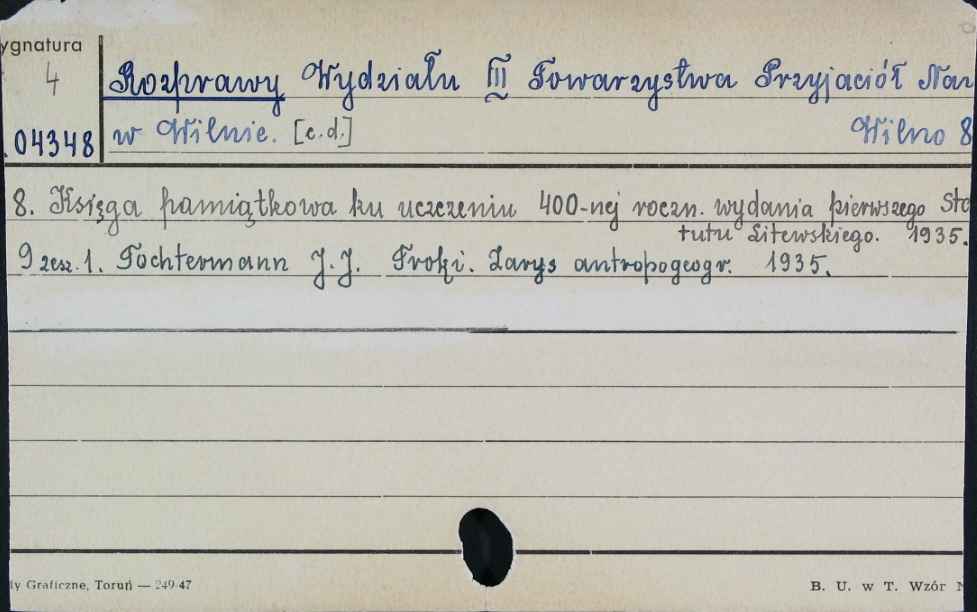 ygnatura
4
Rozprawy Wydziału III Towarzystwa Przyjaciół Nau
.04348 w Wilnie. [c.d.] Wilno 8
8. Księga pamiątkowa ku uczczeniu 400-nej roczn. wydania pierwszego Sta
tutu Litewskiego. 1935.
9 zesz. 1. Tochtermann J.J. Troki. Zarys antropogeogr. 1935.
dy Graficzne, Toruń — 249-47
B. U. w T. Wzór N